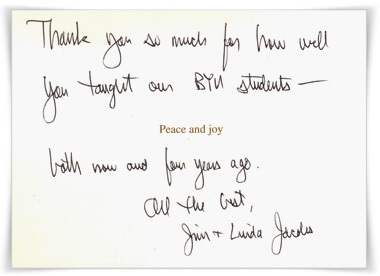 Thank you so much for how well
you taught our BYU students —
Peace and joy
both now and four years ago.
All the best,
Jim + Linda Jacobs